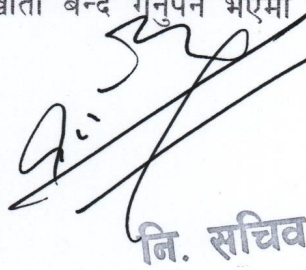 खाता बन्द गर्नुपर्ने भएमा
नि. सचिव